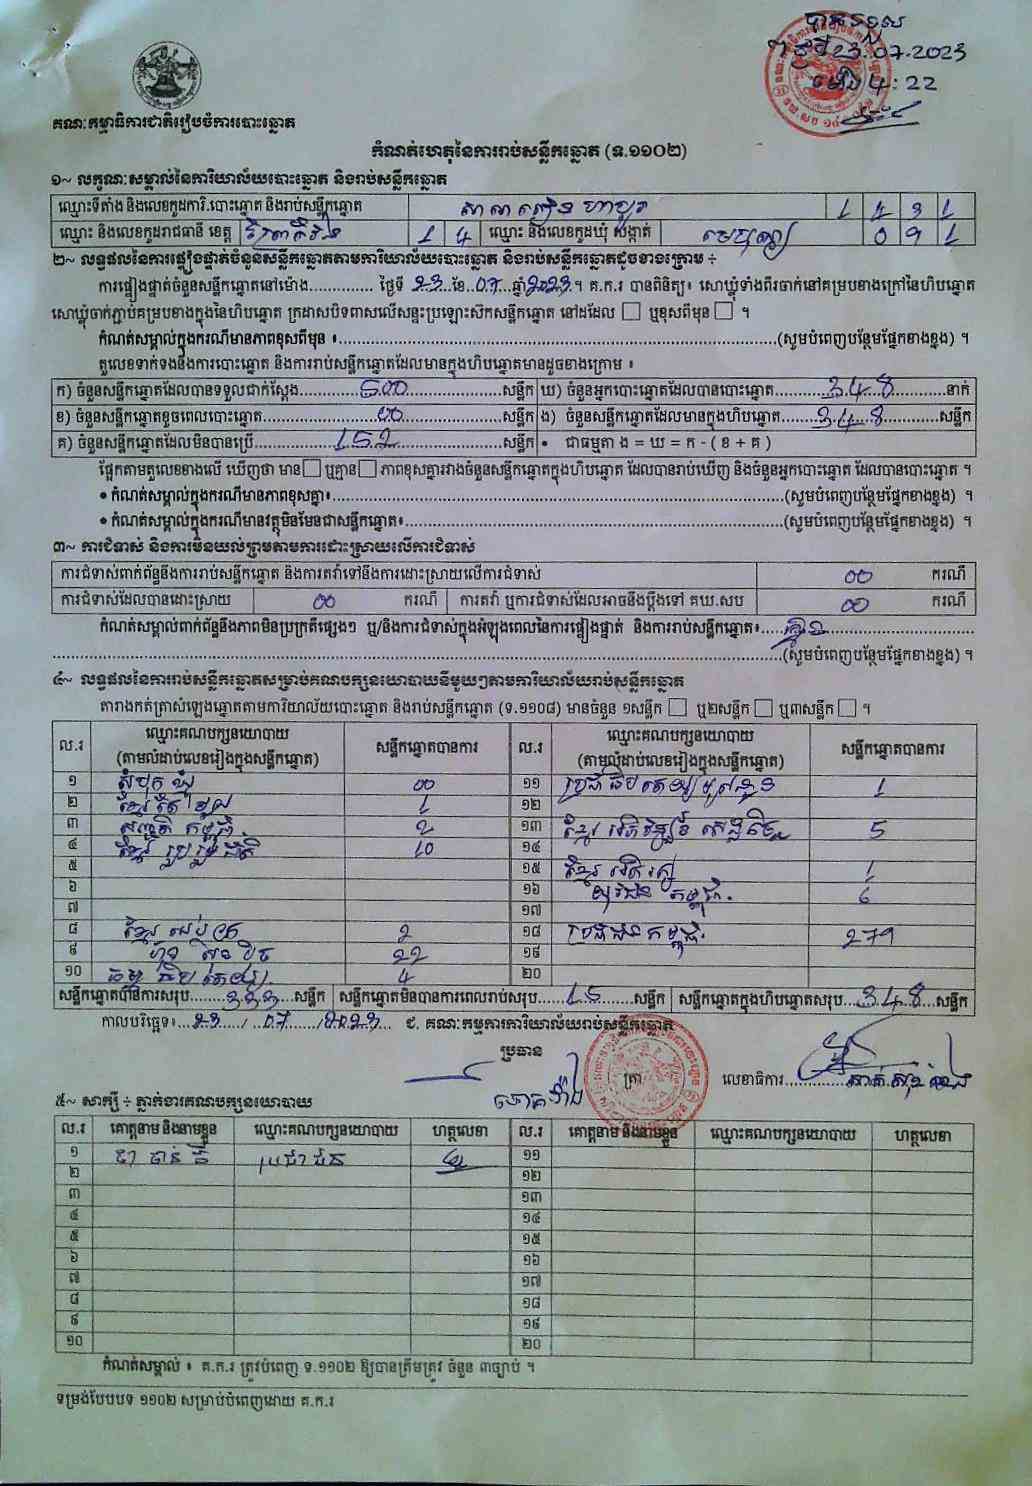 បានទទួល
ថ្ងៃទី 23.07.2023
ម៉ោង 4:22
គណៈកម្មាធិការជាតិរៀបចំការបោះឆ្នោត
កំណត់ហេតុនៃការរាប់សន្លឹកឆ្នោត (ទ.១១០២)
១~ លក្ខណៈសម្គាល់នៃការិយាល័យបោះឆ្នោត និងរាប់សន្លឹកឆ្នោត
ឈ្មោះទីតាំង និងលេខកូដការិ.បោះឆ្នោត និងរាប់សន្លឹកឆ្នោត 1 4 3 1
ឈ្មោះ និងលេខកូដរាជធានី ខេត្ត ព្រៃវែង 1 4 ឈ្មោះ និងលេខកូដឃុំ សង្កាត់ 0 9 1
២~ លទ្ធផលនៃការផ្ទៀងផ្ទាត់ចំនួនសន្លឹកឆ្នោតតាមការិយាល័យបោះឆ្នោត និងរាប់សន្លឹកឆ្នោតដូចខាងក្រោម ÷
ការផ្ទៀងផ្ទាត់ចំនួនសន្លឹកឆ្នោតនៅម៉ោង.............. ថ្ងៃទី 23 ខែ 07 ឆ្នាំ 2023 ។ គ.ក.រ បានពិនិត្យ៖ សោឃ្លុំទាំងពីរចាក់នៅគម្របខាងក្រៅនៃហិបឆ្នោត
សោឃ្លុំចាក់ភ្ជាប់គម្របខាងក្នុងនៃហិបឆ្នោត ក្រដាសបិទពាសលើសន្ទះប្រឡោះសឹកសន្លឹកឆ្នោត នៅដដែល □ ឬខុសពីមុន □ ។
កំណត់សម្គាល់ក្នុងករណីមានភាពខុសពីមុន ៖ (សូមបំពេញបន្ថែមផ្នែកខាងខ្នង) ។
តួលេខទាក់ទងនឹងការបោះឆ្នោត និងការរាប់សន្លឹកឆ្នោតដែលមានក្នុងហិបឆ្នោតមានដូចខាងក្រោម ៖
ក) ចំនួនសន្លឹកឆ្នោតដែលបានទទួលជាក់ស្តែង 500 សន្លឹក ឃ) ចំនួនអ្នកបោះឆ្នោតដែលបានបោះឆ្នោត 348 នាក់
ខ) ចំនួនសន្លឹកឆ្នោតខូចពេលបោះឆ្នោត 00 សន្លឹក ង) ចំនួនសន្លឹកឆ្នោតដែលមានក្នុងហិបឆ្នោត 348 សន្លឹក
គ) ចំនួនសន្លឹកឆ្នោតដែលមិនបានប្រើ 152 សន្លឹក • ជាធម្មតា ង = ឃ = ក - ( ខ + គ )
ផ្អែកតាមតួលេខខាងលើ ឃើញថា មាន □ ឬគ្មាន □ ភាពខុសគ្នារវាងចំនួនសន្លឹកឆ្នោតក្នុងហិបឆ្នោត ដែលបានរាប់ឃើញ និងចំនួនអ្នកបោះឆ្នោត ដែលបានបោះឆ្នោត ។
• កំណត់សម្គាល់ក្នុងករណីមានភាពខុសគ្នា៖ (សូមបំពេញបន្ថែមផ្នែកខាងខ្នង) ។
• កំណត់សម្គាល់ក្នុងករណីមានវត្ថុមិនមែនជាសន្លឹកឆ្នោត៖ (សូមបំពេញបន្ថែមផ្នែកខាងខ្នង) ។
៣~ ការជំទាស់ និងការមិនយល់ព្រមតាមការដោះស្រាយលើការជំទាស់
ការជំទាស់ពាក់ព័ន្ធនឹងការរាប់សន្លឹកឆ្នោត និងការតវ៉ាទៅនឹងការដោះស្រាយលើការជំទាស់ 00 ករណី
ការជំទាស់ដែលបានដោះស្រាយ 00 ករណី ការតវ៉ា ឬការជំទាស់ដែលអាចនឹងប្តឹងទៅ គឃ.សប 00 ករណី
កំណត់សម្គាល់ពាក់ព័ន្ធនឹងភាពមិនប្រក្រតីផ្សេងៗ ឬ/និងការជំទាស់ក្នុងអំឡុងពេលនៃការផ្ទៀងផ្ទាត់ និងការរាប់សន្លឹកឆ្នោត៖ គ្មាន
(សូមបំពេញបន្ថែមផ្នែកខាងខ្នង) ។
៤~ លទ្ធផលនៃការរាប់សន្លឹកឆ្នោតសម្រាប់គណបក្សនយោបាយនីមួយៗតាមការិយាល័យរាប់សន្លឹកឆ្នោត
តារាងកត់ត្រាសំឡេងឆ្នោតតាមការិយាល័យបោះឆ្នោត និងរាប់សន្លឹកឆ្នោត (ទ.១១០៨) មានចំនួន ១សន្លឹក □ ឬ២សន្លឹក □ ឬ៣សន្លឹក □ ។
ល.រ ឈ្មោះគណបក្សនយោបាយ សន្លឹកឆ្នោតបានការ ល.រ ឈ្មោះគណបក្សនយោបាយ សន្លឹកឆ្នោតបានការ
(តាមលំដាប់លេខរៀងក្នុងសន្លឹកឆ្នោត) (តាមលំដាប់លេខរៀងក្នុងសន្លឹកឆ្នោត)
១ សំបុកឃ្មុំ 00 ១១ 1
២ 1 ១២
៣ 2 ១៣ 5
៤ ខ្មែររួបរួមជាតិ 10 ១៤
៥ ១៥ 1
៦ ១៦ យុវជនកម្ពុជា 6
៧ ១៧
៨ 2 ១៨ ប្រជាជនកម្ពុជា 279
៩ ហ៊្វុនស៊ិនប៉ិច 22 ១៩
១០ 4 ២០
សន្លឹកឆ្នោតបានការសរុប 333 សន្លឹក សន្លឹកឆ្នោតមិនបានការពេលរាប់សរុប 15 សន្លឹក សន្លឹកឆ្នោតក្នុងហិបឆ្នោតសរុប 348 សន្លឹក
កាលបរិច្ឆេទ៖ 23 / 07 / 2023 ជ. គណៈកម្មការការិយាល័យរាប់សន្លឹកឆ្នោត
ប្រធាន
ត្រា លេខាធិការ
៥~ សាក្សី ÷ ភ្នាក់ងារគណបក្សនយោបាយ
ល.រ គោត្តនាម និងនាមខ្លួន ឈ្មោះគណបក្សនយោបាយ ហត្ថលេខា ល.រ គោត្តនាម និងនាមខ្លួន ឈ្មោះគណបក្សនយោបាយ ហត្ថលេខា
១ ប្រជាជន ១១
២ ១២
៣ ១៣
៤ ១៤
៥ ១៥
៦ ១៦
៧ ១៧
៨ ១៨
៩ ១៩
១០ ២០
កំណត់សម្គាល់ ៖ គ.ក.រ ត្រូវបំពេញ ទ.១១០២ ឱ្យបានត្រឹមត្រូវ ចំនួន ៣ច្បាប់ ។
ទម្រង់បែបបទ ១១០២ សម្រាប់បំពេញដោយ គ.ក.រ